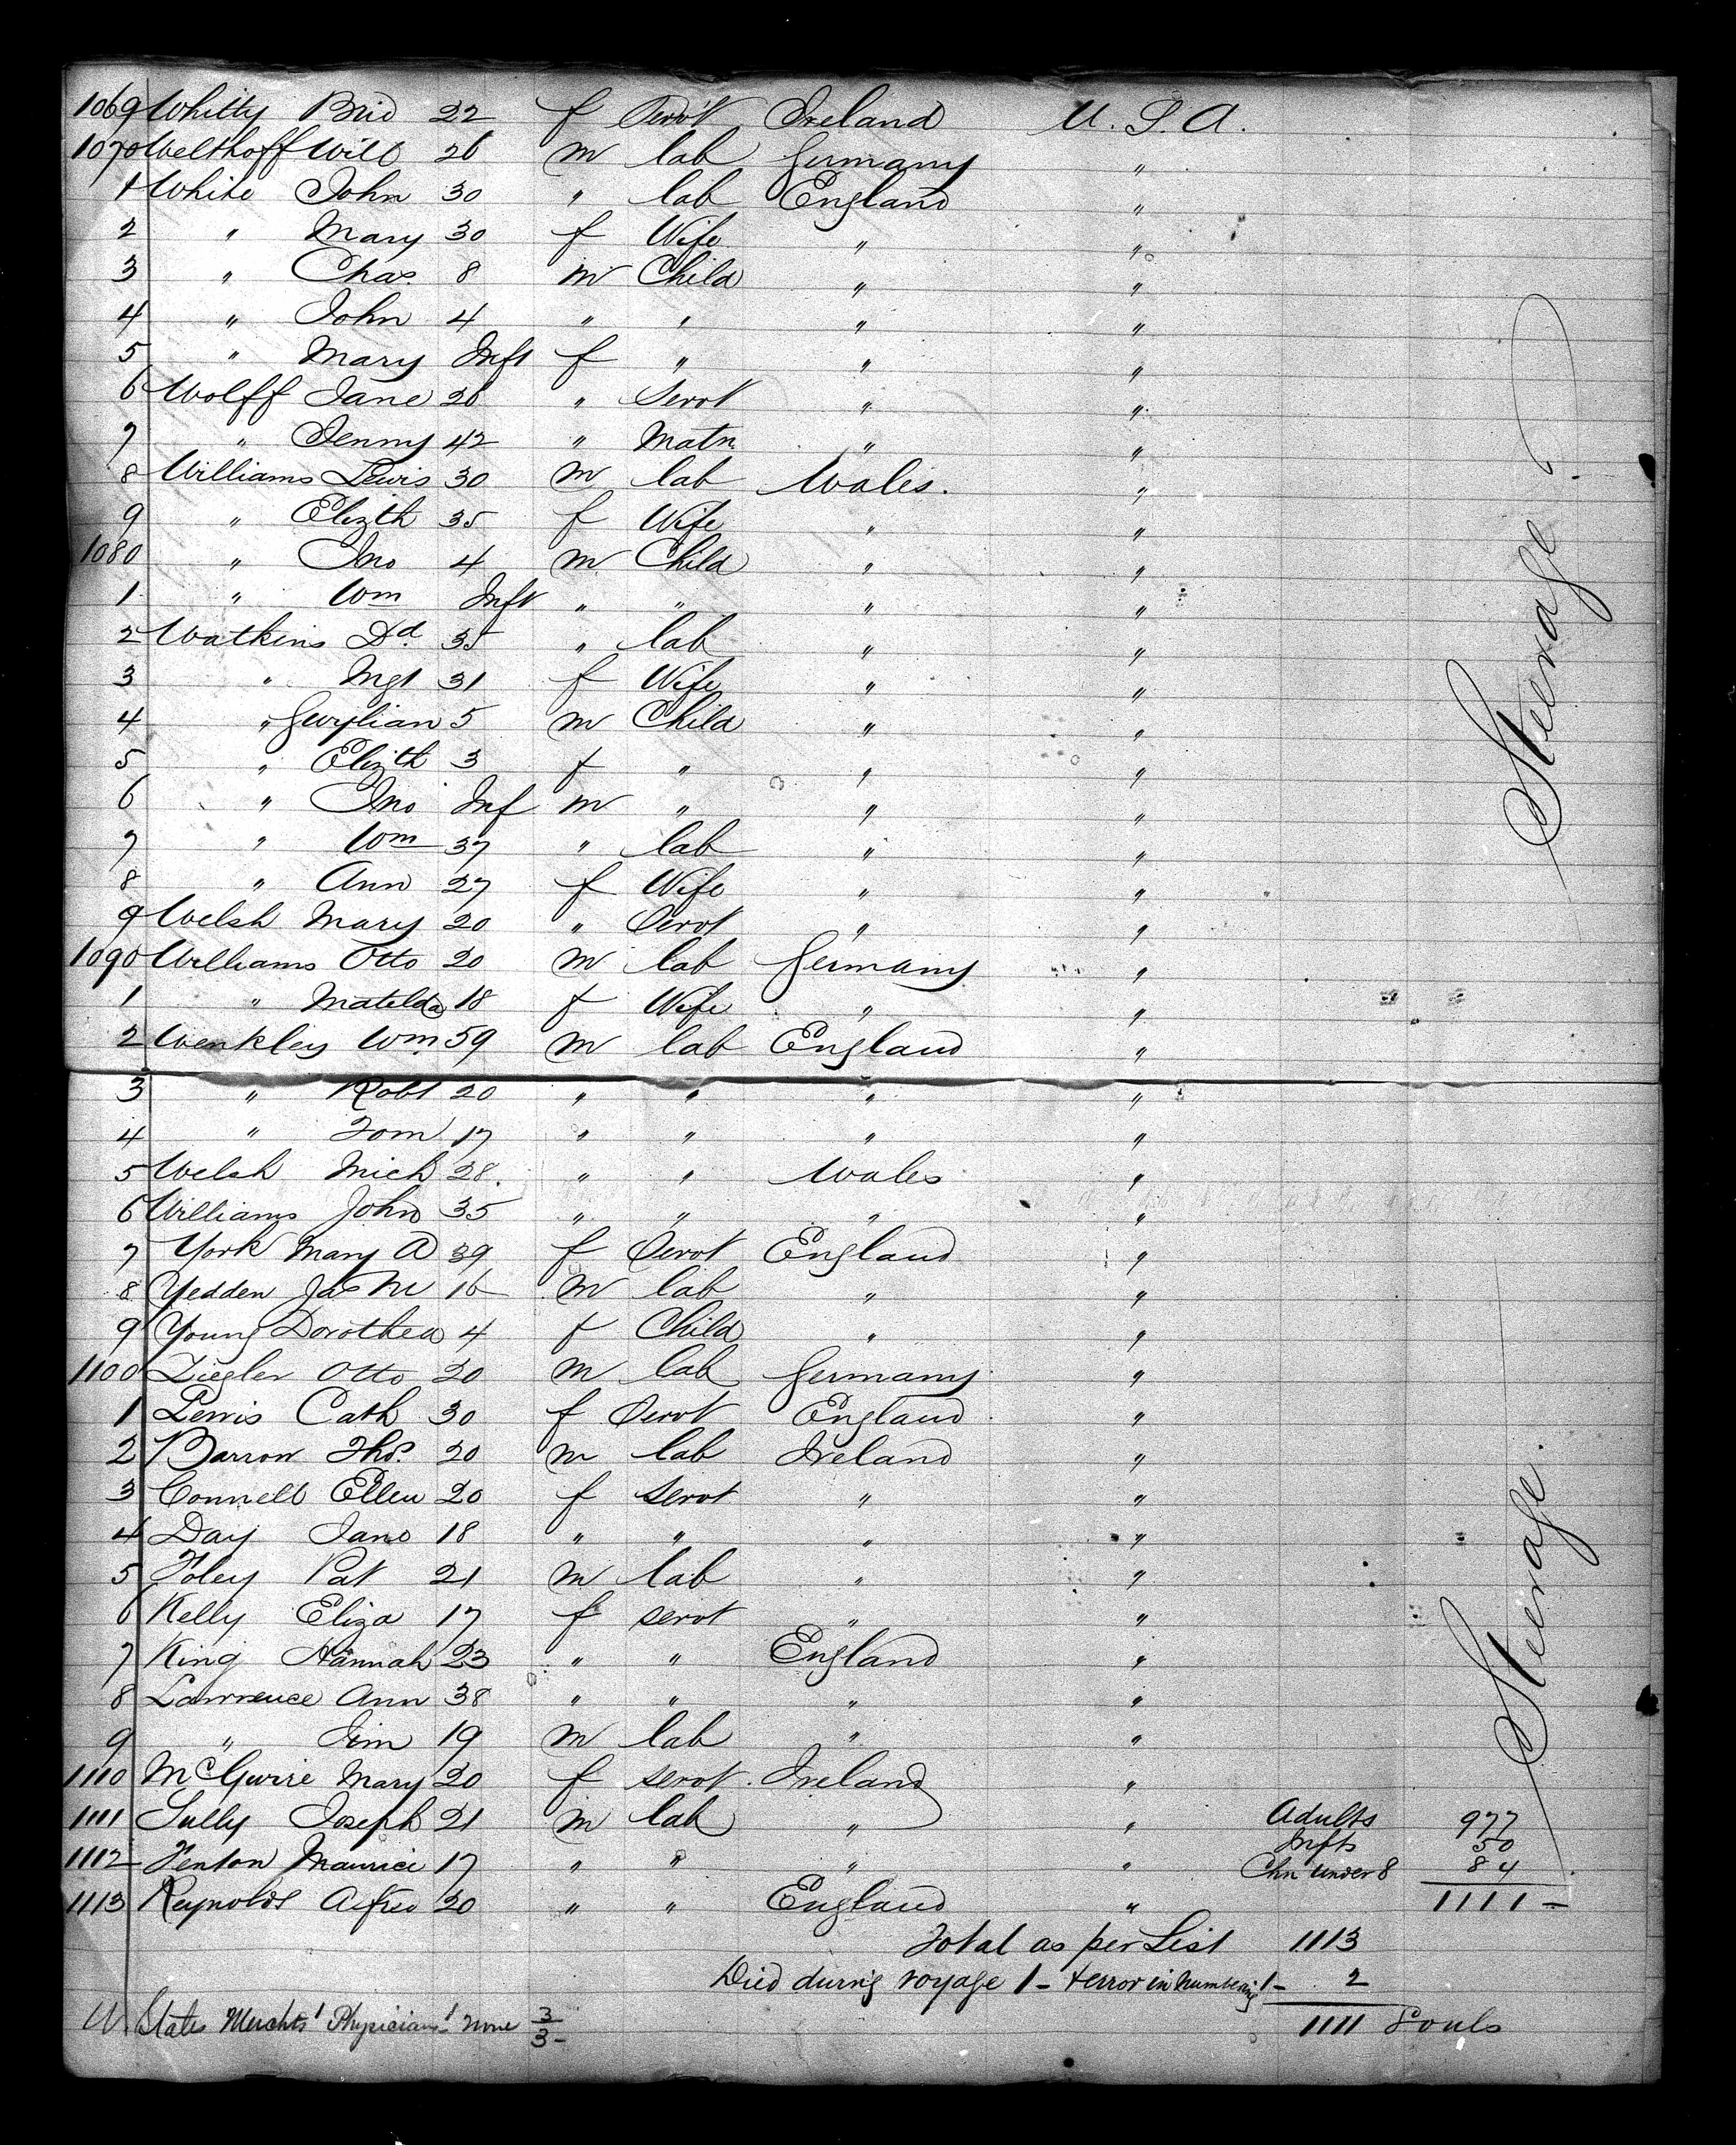 1069 Whitty Brid 22 f Servt Ireland U. S. A.
1070 Welthoff Will 26 m lab Germany "
1 White John 30 " lab England "
2 " Mary 30 f Wife " "
3 " Chas. 8 m Child " "
4 " John 4 " " " "
5 " Mary Inft f " " "
6 Wolff Jane 26 " Servt " "
7 " Jenny 42 " Matn " "
8 Williams Lewis 30 m lab Wales. "
9 " Elizth 35 f Wife " "
1080 " Jno 4 m Child " "
1 " Wm Inft " " " "
2 Watkins Dd. 35 " lab " "
3 " Mgt 31 f Wife " "
4 " 5 m Child " "
5 " Elizth 3 f " " "
6 " Jno Inf m " " "
7 " Wm 37 " lab " "
8 " Ann 27 f Wife " "
9 Welsh Mary 20 " Servt " "
1090 Williams Otto 20 m lab Germany "
1 " Matelda 18 f Wife " "
2 Wenkley Wm 59 m lab England "
3 " Robt 20 " " " "
4 " Tom 17 " " " "
5 Welsh Mich 28. " " Wales "
6 Williams John 35 " " " "
7 York Mary A 39 f Servt England "
8 Yedden Jas 16 m lab " "
9 Young Dorothea 4 f Child " "
1100 Ziegler Otto 20 m lab Germany "
1 Lewis Cath 30 f Servt England "
2 Barron Thos. 20 m lab Ireland "
3 Connell Ellen 20 f servt " "
4 Day Jane 18 " " " "
5 Foley Pat 21 m lab " "
6 Kelly Eliza 17 f servt " "
7 King Hannah 23 " " England "
8 Lawrence Ann 38 " " " "
9 " Jim 19 m lab " "
1110 McGuire Mary 20 f servt. Ireland "
1111 Sully Joseph 21 m lab " " Adults 977
Infts 50
1112 Fenton Maurice 17 " " " " Chn under 8 84
1113 Reynolds Alfred 20 " " England " 1111 -
Total as per List 1113
Died during voyage 1 - + error in numbering 1 - 2
U. States Merchts 1 Physicians 1 None 3/3 - 1111 Souls
Steerage
Steerage